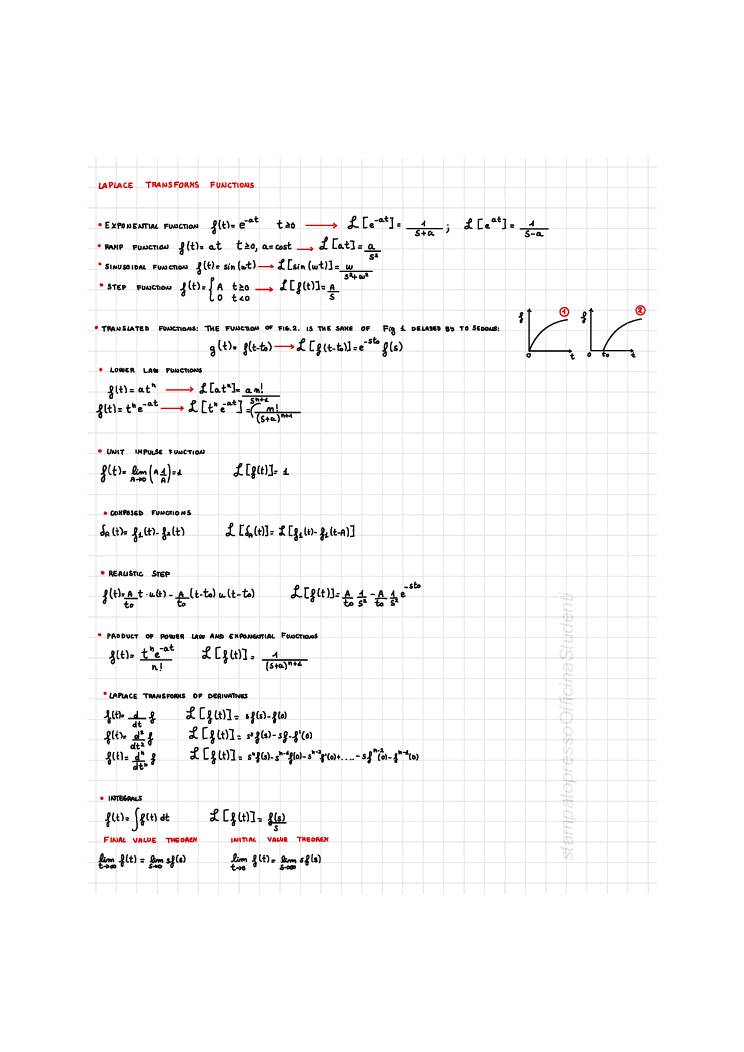 LAPLACE TRANSFORMS FUNCTIONS
• EXPONENTIAL FUNCTION f(t)= e^-at t≥0 → L[e^-at]= 1/(s+a) ; L[e^at]= 1/(s-a)
• RAMP FUNCTION f(t)= at t≥0, a=cost → L[at]= a/s²
• SINUSOIDAL FUNCTION f(t)= sin(wt) → L[sin(wt)]= w/(s²+w²)
• STEP FUNCTION f(t)= { A t≥0 → L[f(t)]= A/s
0 t<0
f f ① ②
• TRANSLATED FUNCTIONS: THE FUNCTION OF FIG.2. IS THE SAME OF Fig 1 DELAYED BY TO
0 t 0 to t
g(t)= f(t-to) → L[f(t-to)]= e^-sto f(s)
• LOWER LAW FUNCTIONS
f(t)= at^n → L[at^n]= a n!/s^n+1
f(t)= t^n e^-at → L[t^n e^-at]= n!/(s+a)^n+1
• UNIT IMPULSE FUNCTION
f(t)= lim A→0 (A 1/A)=1 L[f(t)]= 1
• COMPOSED FUNCTIONS
δA(t)= f1(t)- f2(t) L[δA(t)]= L[f1(t)- f1(t-A)]
• REALISTIC STEP
f(t)= A/to t·u(t) - A/to (t-to) u(t-to) L[f(t)]= A/to 1/s² - A/to 1/s² e^-sto
• PRODUCT OF POWER LAW AND EXPONENTIAL FUNCTIONS
f(t)= t^n e^-at/n! L[f(t)]= 1/(s+a)^n+1
• LAPLACE TRANSFORMS OF DERIVATIVES
f(t)= d/dt f L[f(t)]= sf(s)-f(0)
f(t)= d²/dt² f L[f(t)]= s²f(s)-sf-f'(0)
f(t)= d^n/dt^n f L[f(t)]= s^n f(s)-s^n-1 f(0)-s^n-2 f'(0)+....-sf^n-2(0)-f^n-1(0)
• INTEGRALS
f(t)= ∫f(t) dt L[f(t)]= f(s)/s
FINAL VALUE THEOREM INITIAL VALUE THEOREM
lim t→∞ f(t) = lim s→0 sf(s) lim t→0 f(t)= lim s→∞ sf(s)
stampatopressoOfficinaStudenti